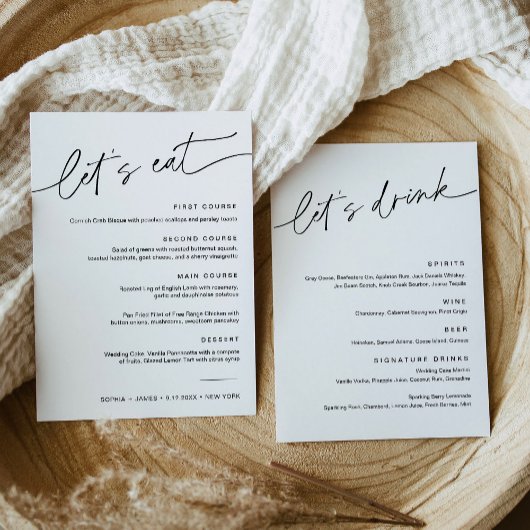 let's eat
FIRST COURSE
Cornish Crab Bisque with poached scallops and parsley toasts
SECOND COURSE
Salad of greens with roasted butternut squash,
toasted hazelnuts, goat cheese, and a sherry vinaigrette
MAIN COURSE
Roasted Leg of English Lamb with rosemary,
garlic and dauphinoise potatoes
Pan Fried Fillet of Free Range Chicken with
button onions, mushrooms, sweetcorn pancakey
DESSERT
Wedding Cake, Vanilla Pannacotta with a compote
of fruits, Glazed Lemon Tart with citrus syrup
SOPHIA + JAMES • 9.12.20XX • NEW YORK
let's drink
SPIRITS
Grey Goose, Beefeaters Gin, Appleton Rum, Jack Daniels Whiskey,
Jim Beam Scotch, Knob Creek Bourbon, Juarez Tequila
WINE
Chardonnay, Cabernet Sauvignon, Pinot Grigio
BEER
Heineken, Samuel Adams, Goose Island, Guiness
SIGNATURE DRINKS
Wedding Cake Martini
Vanilla Vodka, Pineapple Juice, Coconut Rum, Grenadine
Sparkling Berry Lemonade
Sparkling Rose, Chambord, Lemon Juice, Fresh Berries, Mint